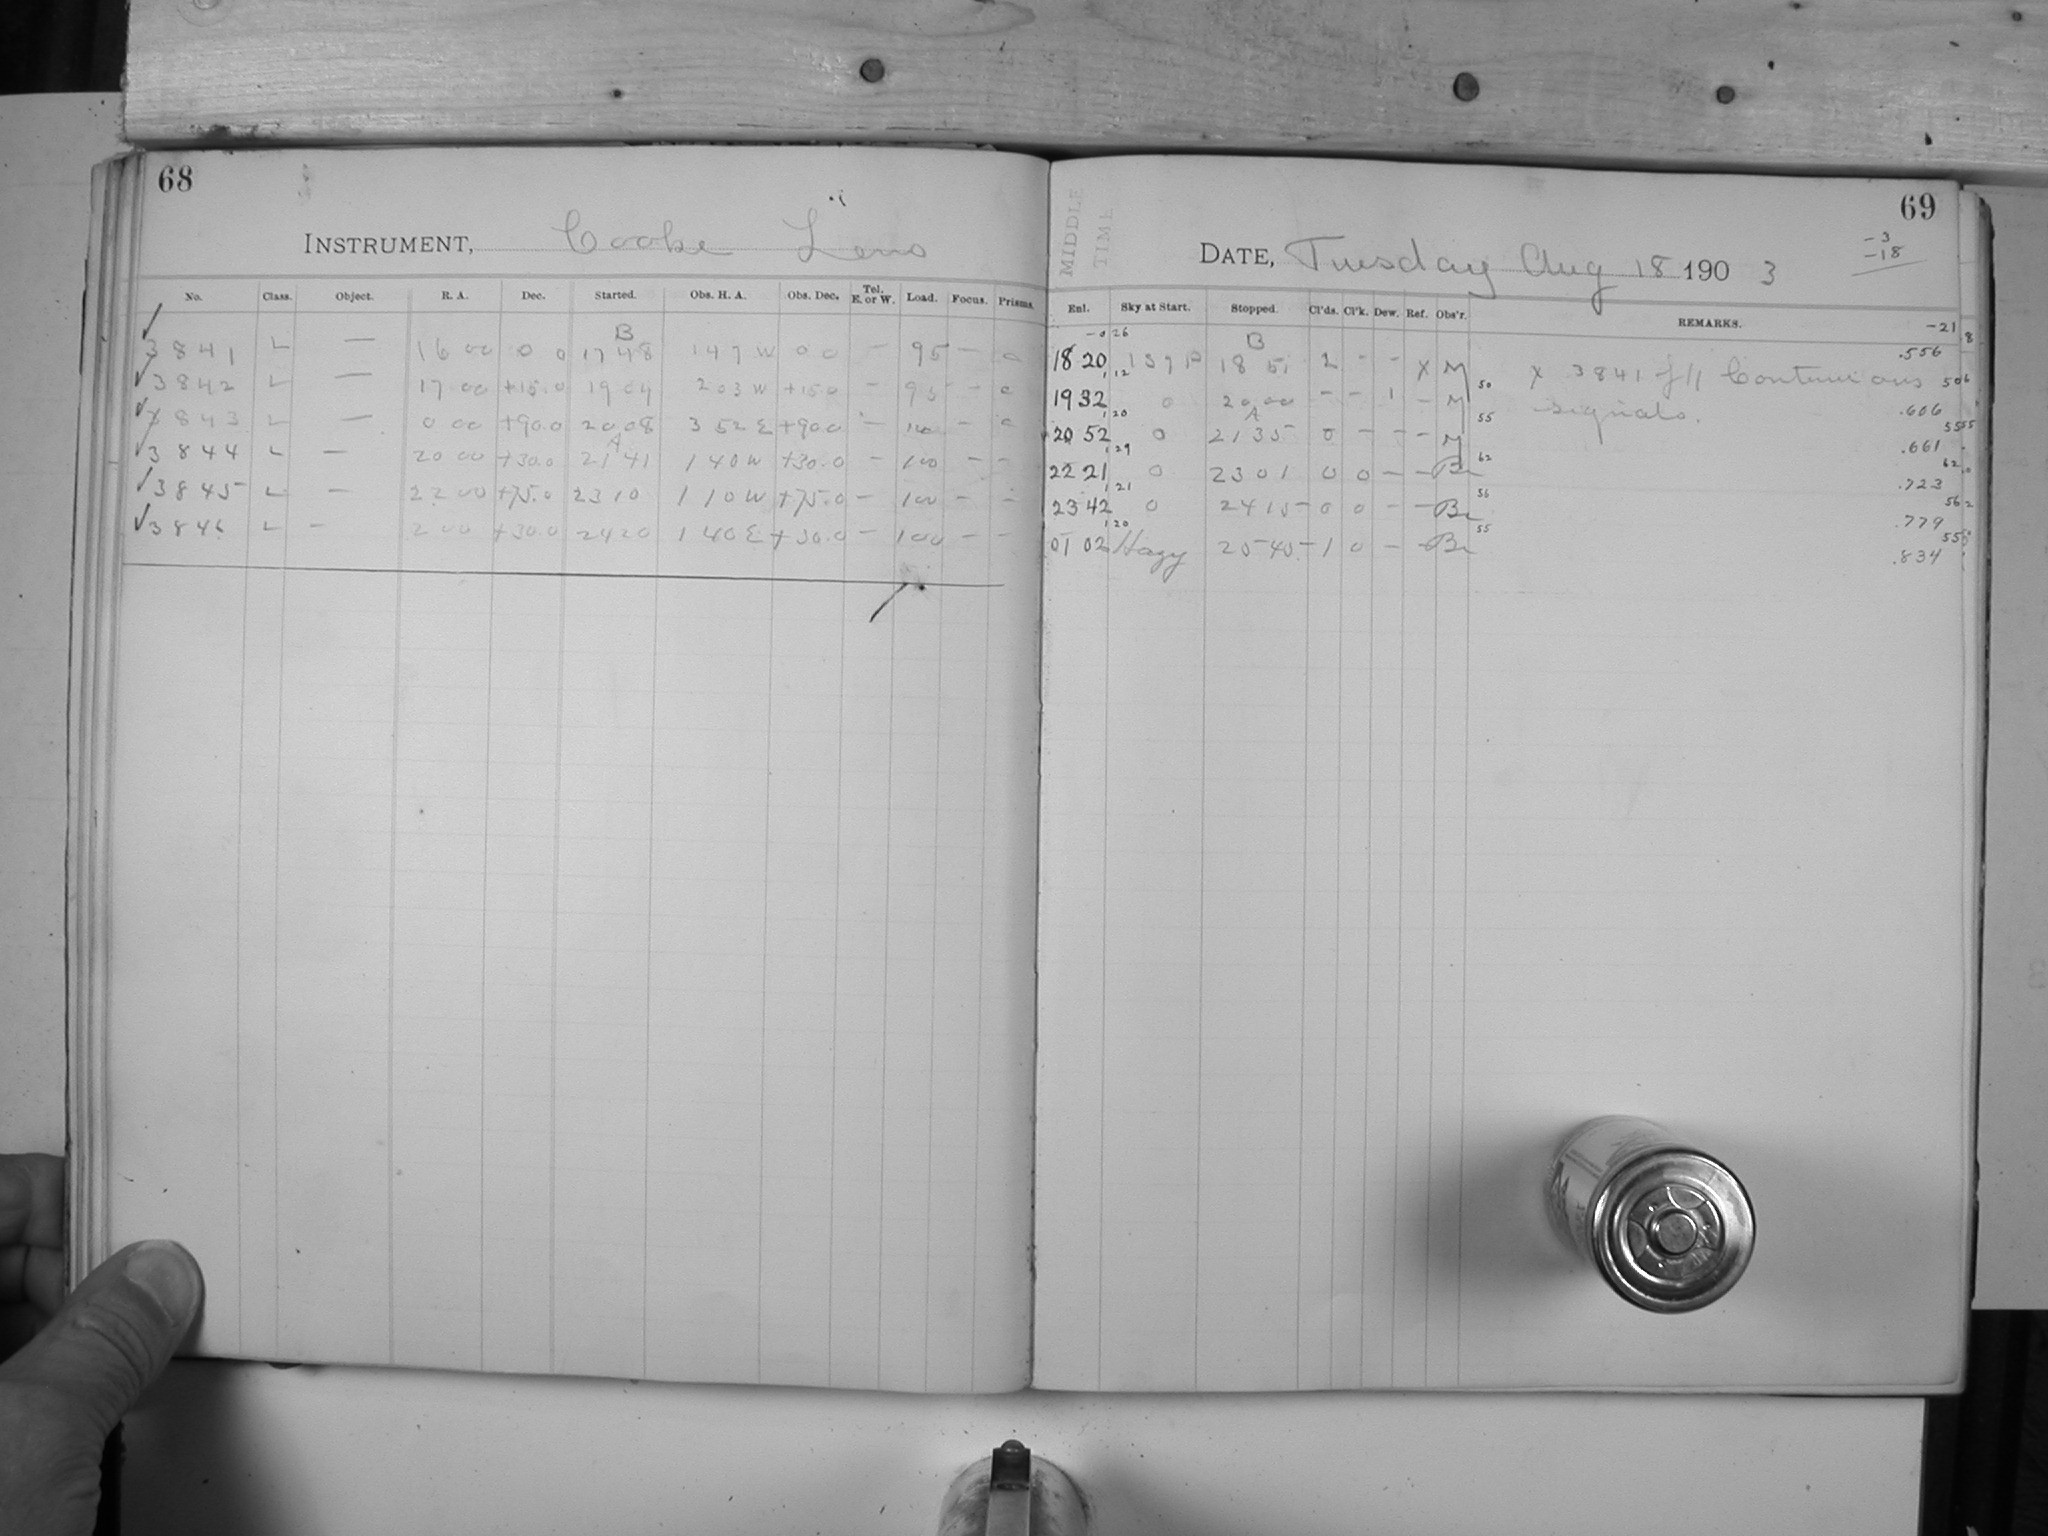 68
INSTRUMENT, Cooke Lens
No. Class. Object. R. A. Dec. Started. Obs. H. A. Obs. Dec. Tel. E. or W. Load. Focus. Prisms.
B
3841 L — 16 00 0 0 17 48 1 47 W 0 0 — 95 — 0
3842 L — 17 00 +15.0 19 04 2 03 W +15.0 — 95 — 0
3843 L — 0 00 +90.0 20 08 3 52 E +90.0 — 100 — 0
A
3844 L — 20 00 +30.0 21 41 1 40 W +30.0 — 100 — —
3845 L — 22 00 +75.0 23 10 1 10 W +75.0 — 100 — —
3846 L — 2 00 +30.0 24 20 1 40 E +30.0 — 100 — —
69
MIDDLE
TIME
DATE, Tuesday Aug 18 1903
-3
-18
Enl. Sky at Start. Stopped. Cl'ds. Cl'k. Dew. Ref. Obs'r. REMARKS.
-21
-0 26
B
18 20 1 37 P 18 51 2 - - X M X 3841 f/l Continuous .556
1 12 50 506
19 32 0 20 00 - - 1 - M signals. .606
1 20 A 55 55
20 52 0 21 35 0 - - - M .661
1 29 62 62
22 21 0 23 01 0 0 - - Br .723
1 21 56 56
23 42 0 24 15 0 0 - - Br .779
1 20 55 55
01 02 Hazy 25 40 1 0 - - Br .834